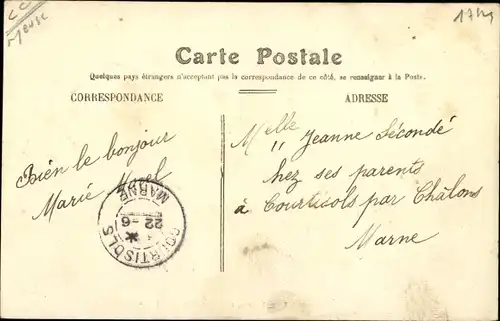 Meuse
1724
Carte Postale
Quelques pays étrangers n'acceptant pas la correspondance de ce côté, se renseigner à la Poste.
CORRESPONDANCE
ADRESSE
Bien le bonjour
Marie
Melle Jeanne Sécondé
chez ses parents
à Courtisols par Châlons
Marne
COURTISOLS
MARNE
22 -6